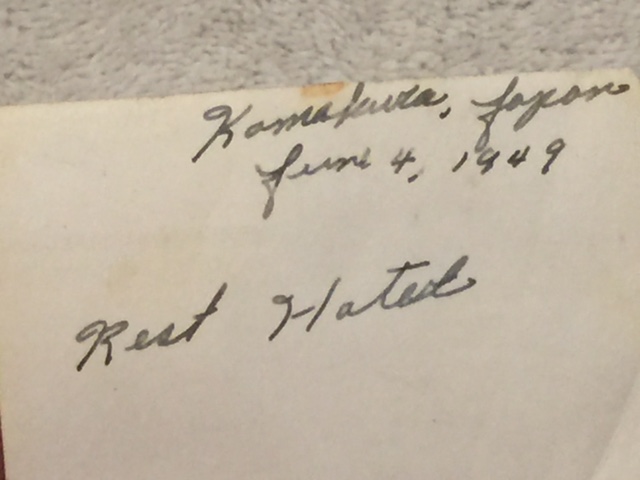 Kamakura, Japan
June 4, 1949
Rest Hotel